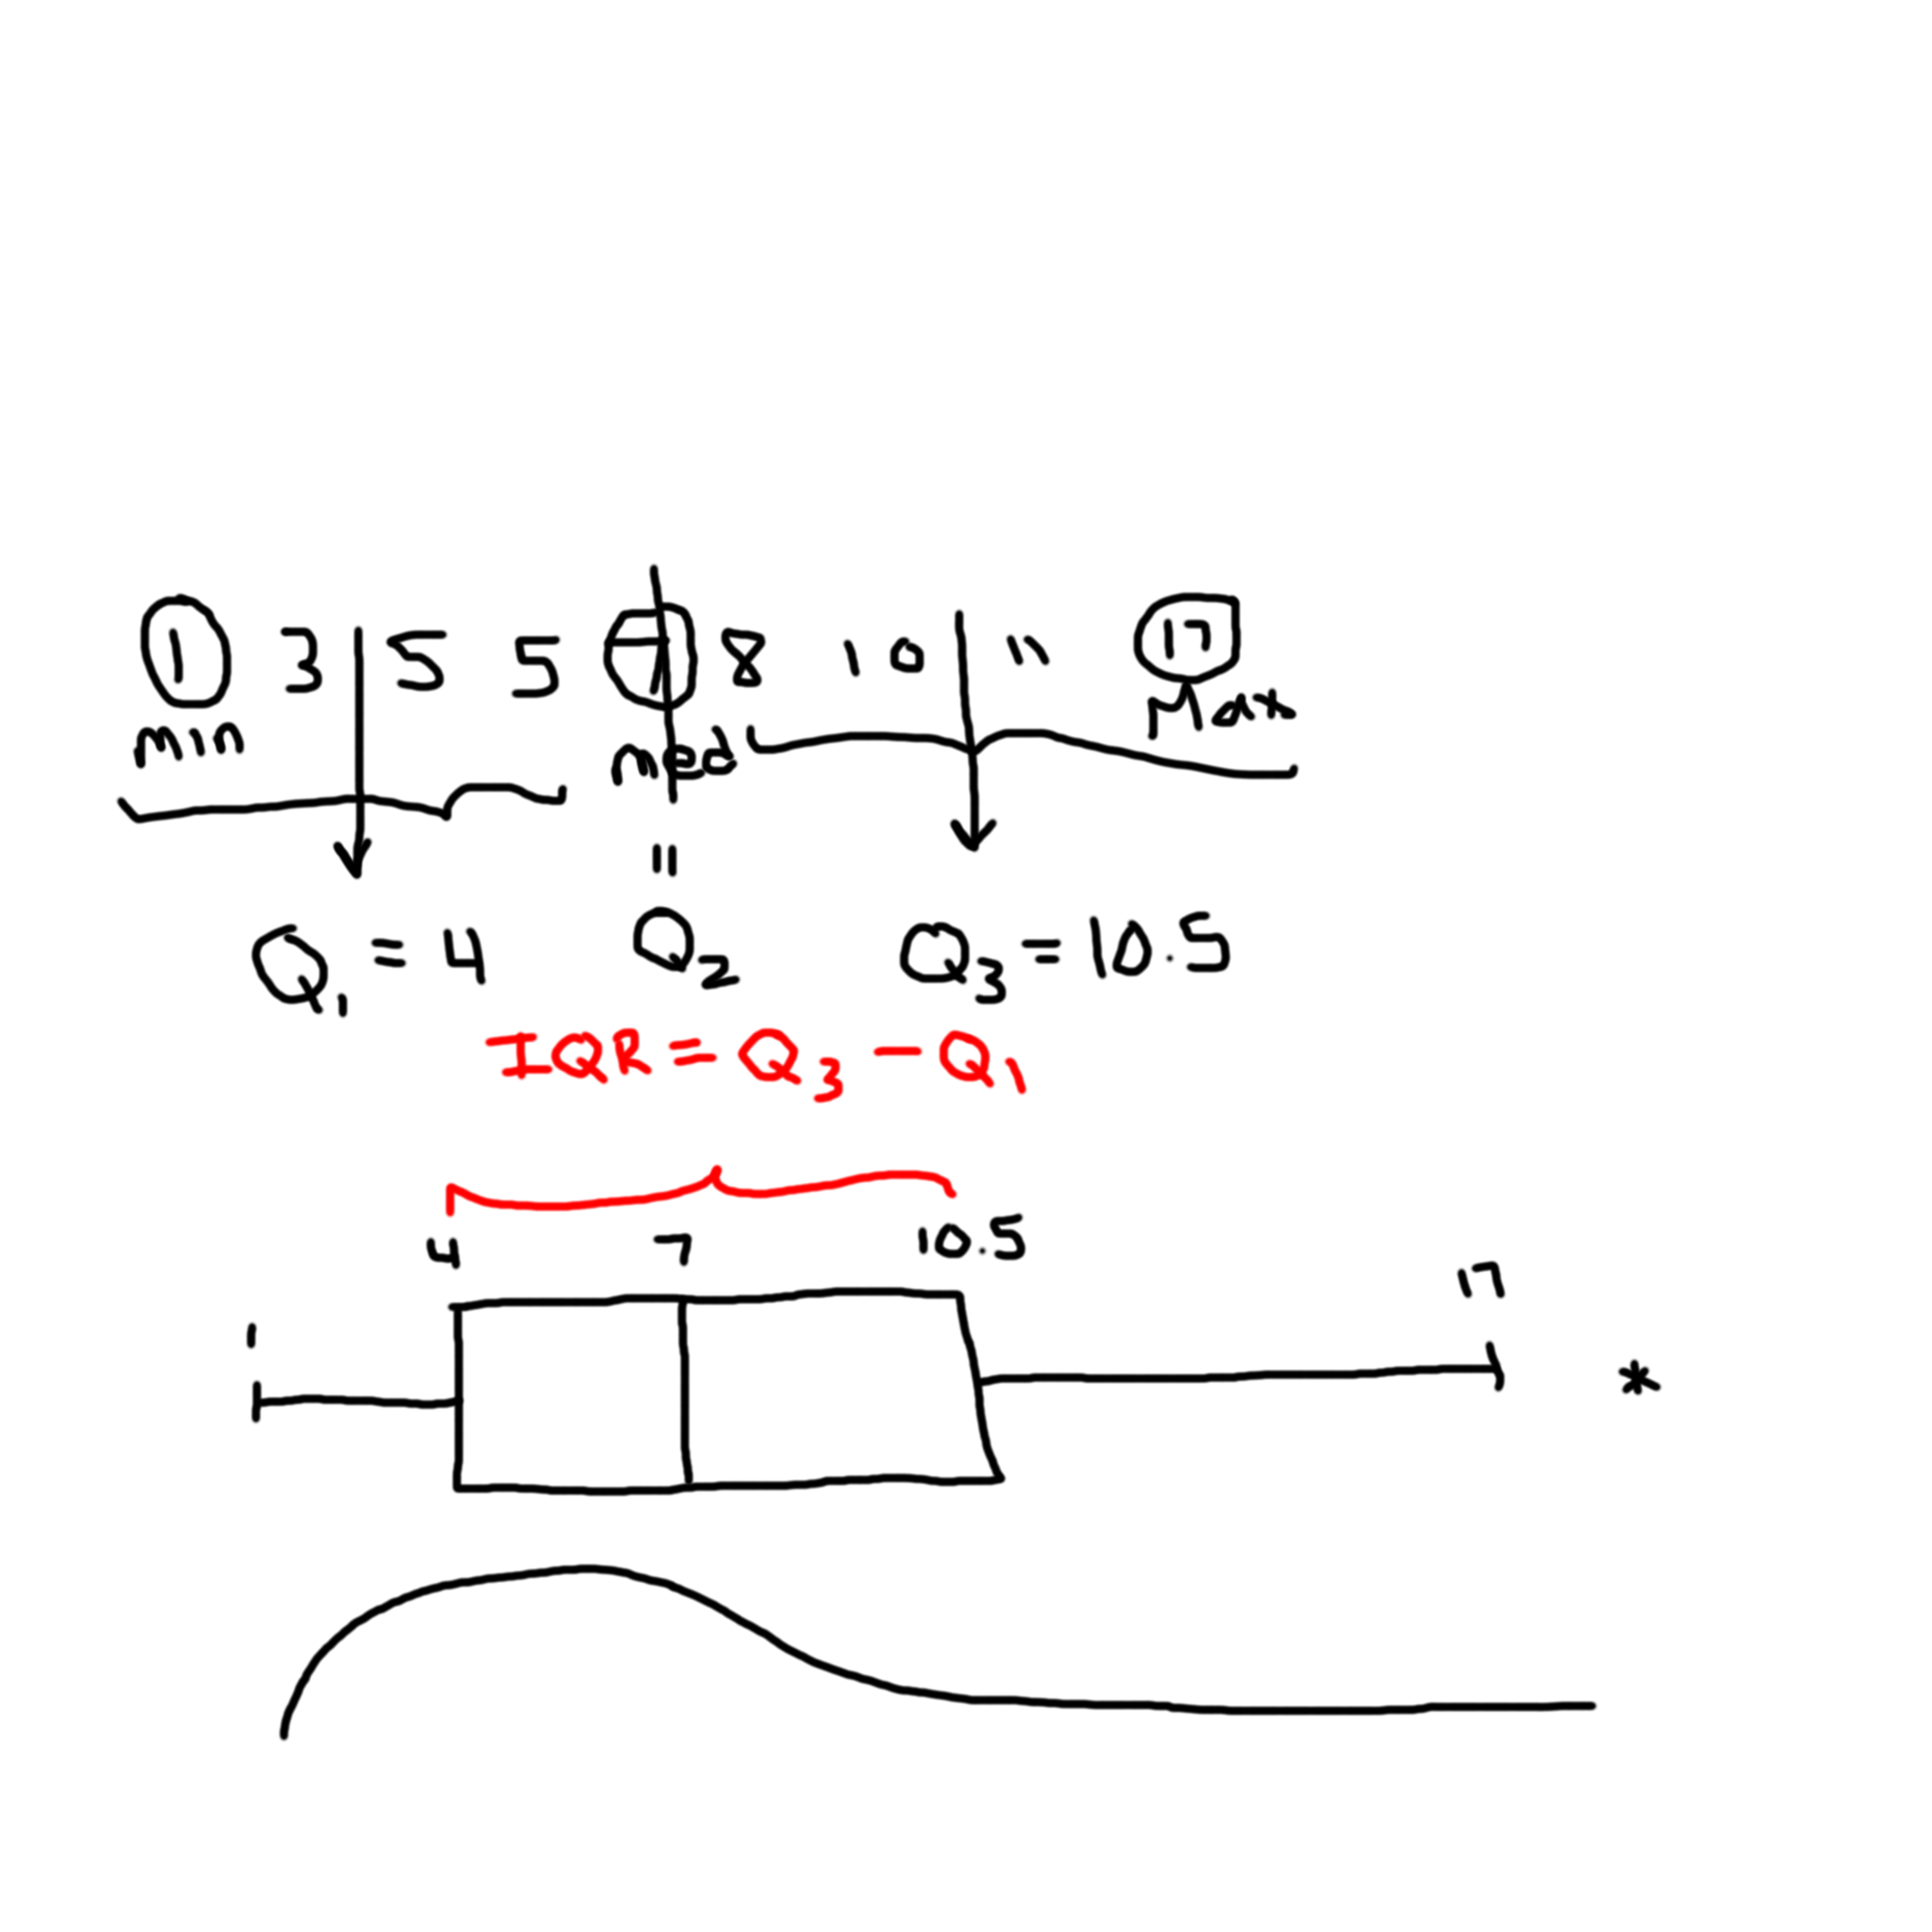 1 3 5 5 7 8 10 11 17
min med Max
=
Q1 = 4 Q2 Q3 = 10.5
IQR = Q3 - Q1
4 7 10.5 17
1
*